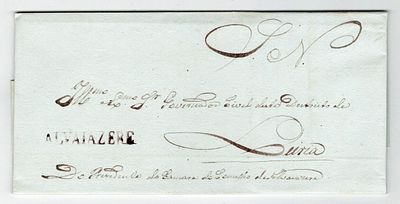 S. N.
Illmo Exmo Sr. Governador Civil do Districto de
ALVAIAZERE
Leiria
Do Presidente da Camara do Concelho de Alvaiazere